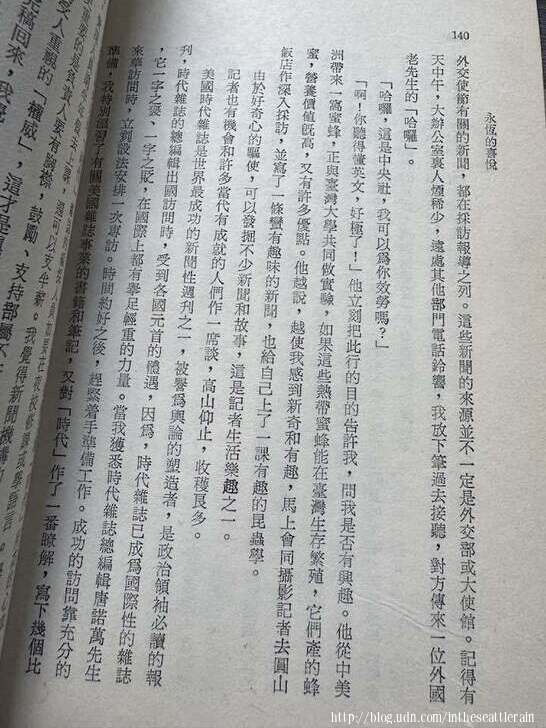 140
永恆的喜悅
外交使節有關的新聞，都在採訪報導之列。這些新聞的來源並不一定是外交部或大使館。記得有
天中午，大辦公室裏人煙稀少，遠處其他部門電話鈴響，我放下筆過去接聽，對方傳來一位外國
老先生的「哈囉」。
「哈囉，這是中央社，我可以爲你效勞嗎？」
「啊！你聽得懂英文，好極了！」他立刻把此行的目的告訴我，問我是否有興趣。他從中美
洲帶來一窩蜜蜂，正與臺灣大學共同做實驗，如果這些熱帶蜜蜂能在臺灣生存繁殖，它們產的蜂
蜜，營養價值旣高，又有許多優點。他越說，越使我感到新奇和有趣，馬上會同攝影記者去圓山
飯店作深入採訪，並寫了一條蠻有趣味的新聞，也給自己上了一課有趣的昆蟲學。
由於好奇心的驅使，可以發掘不少新聞和故事，這是記者生活樂趣之一。
記者也有機會和許多當代有成就的人們作一席談，高山仰止，收穫良多。
美國時代雜誌是世界最成功的新聞性週刊之一，被譽爲輿論的塑造者，是政治領袖必讀的報
刊，時代雜誌的總編輯出國訪問時，受到各國元首的體遇，因爲，時代雜誌已成爲國際性的雜誌
，它一字之褒、一字之貶，在國際上都有舉足輕重的力量。當我獲悉時代雜誌總編輯唐諾萬先生
來華訪問時，立刻設法安排一次專訪。時間約好之後，趕緊着手準備工作。成功的訪問靠充分的
準備，我特別溫習了有關美國雜誌事業的書籍和筆記，又對「時代」作了一番瞭解，寫下幾個比
受人重視的「權威」，這才是
完稿回來，我
http://blog.udn.com/intheseattlerain